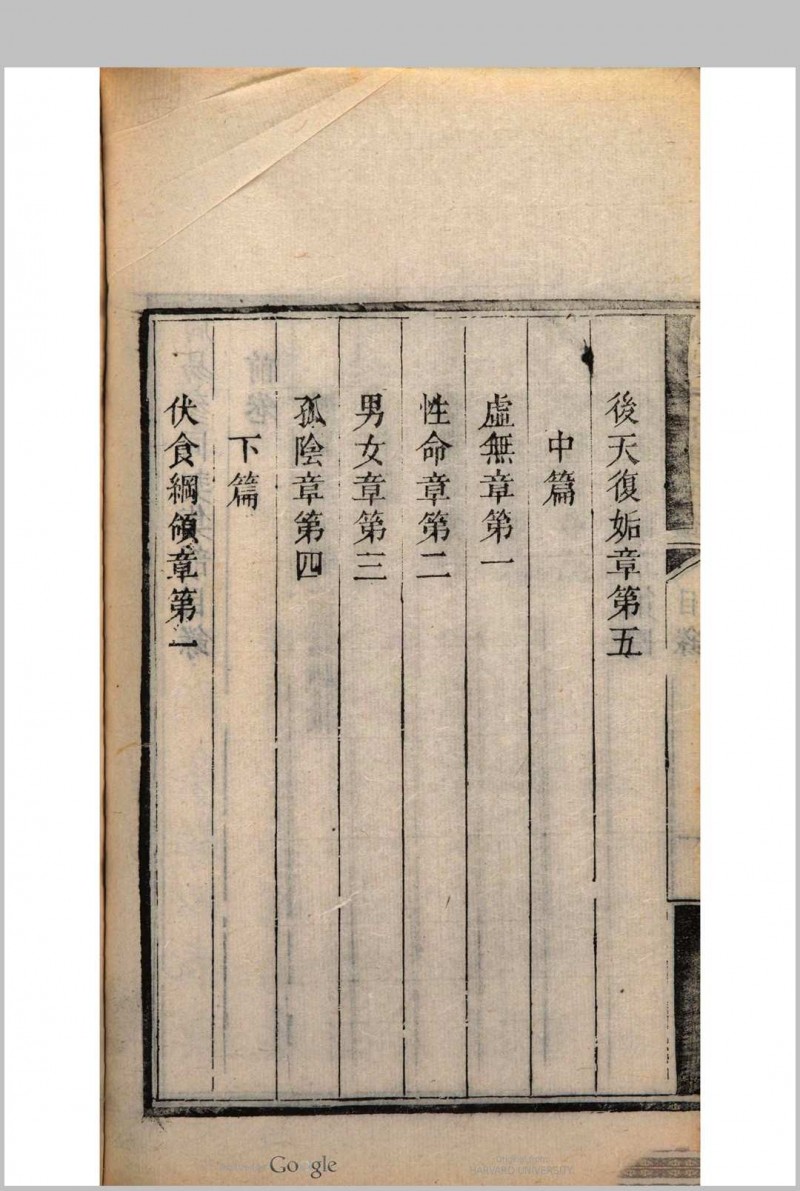 後天復姤章第五
中篇
虛無章第一
性命章第二
男女章第三
孤陰章第四
下篇
伏食綱領章第一
Google
HARVARD UNIVERSITY